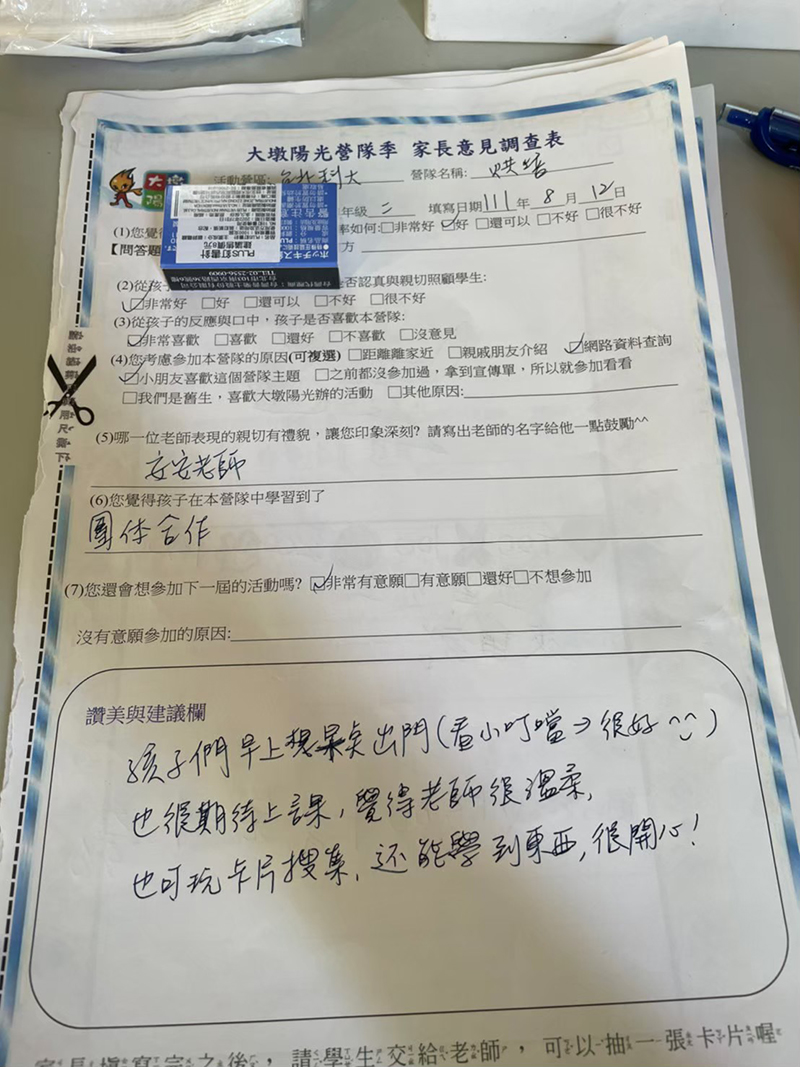 大墩陽光營隊季 家長意見調查表
大墩
陽
活動營區: 台北科大 營隊名稱: 烘焙
年級 二 填寫日期 111 年 8 月 12 日
(1)您覺得 率如何:□非常好☑好 □還可以 □不好 □很不好
【問答題 方
警告注意
ホッチキス
建議售價8元
PLUS釘書針
TEL:02-2556-0900
(2)從孩子 否認真與親切照顧學生:
☑非常好 □好 □還可以 □不好 □很不好
(3)從孩子的反應與口中，孩子是否喜歡本營隊:
☑非常喜歡 □喜歡 □還好 □不喜歡 □沒意見
(4)您考慮參加本營隊的原因(可複選) □距離離家近 □親戚朋友介紹 ☑網路資料查詢
☑小朋友喜歡這個營隊主題 □之前都沒參加過，拿到宣傳單，所以就參加看看
□我們是舊生，喜歡大墩陽光辦的活動 □其他原因:
(5)哪一位老師表現的親切有禮貌，讓您印象深刻? 請寫出老師的名字給他一點鼓勵^^
安安老師
(6)您覺得孩子在本營隊中學習到了
團体合作
(7)您還會想參加下一屆的活動嗎? ☑非常有意願□有意願□還好□不想參加
沒有意願參加的原因:
讚美與建議欄
孩子們早上想早点出門(看小叮噹→很好^^)
也很期待上課, 覺得老師很溫柔,
也可玩卡片搜集, 还能學到東西, 很開心!
家長填寫完之後，請學生交給老師，可以抽一張卡片喔